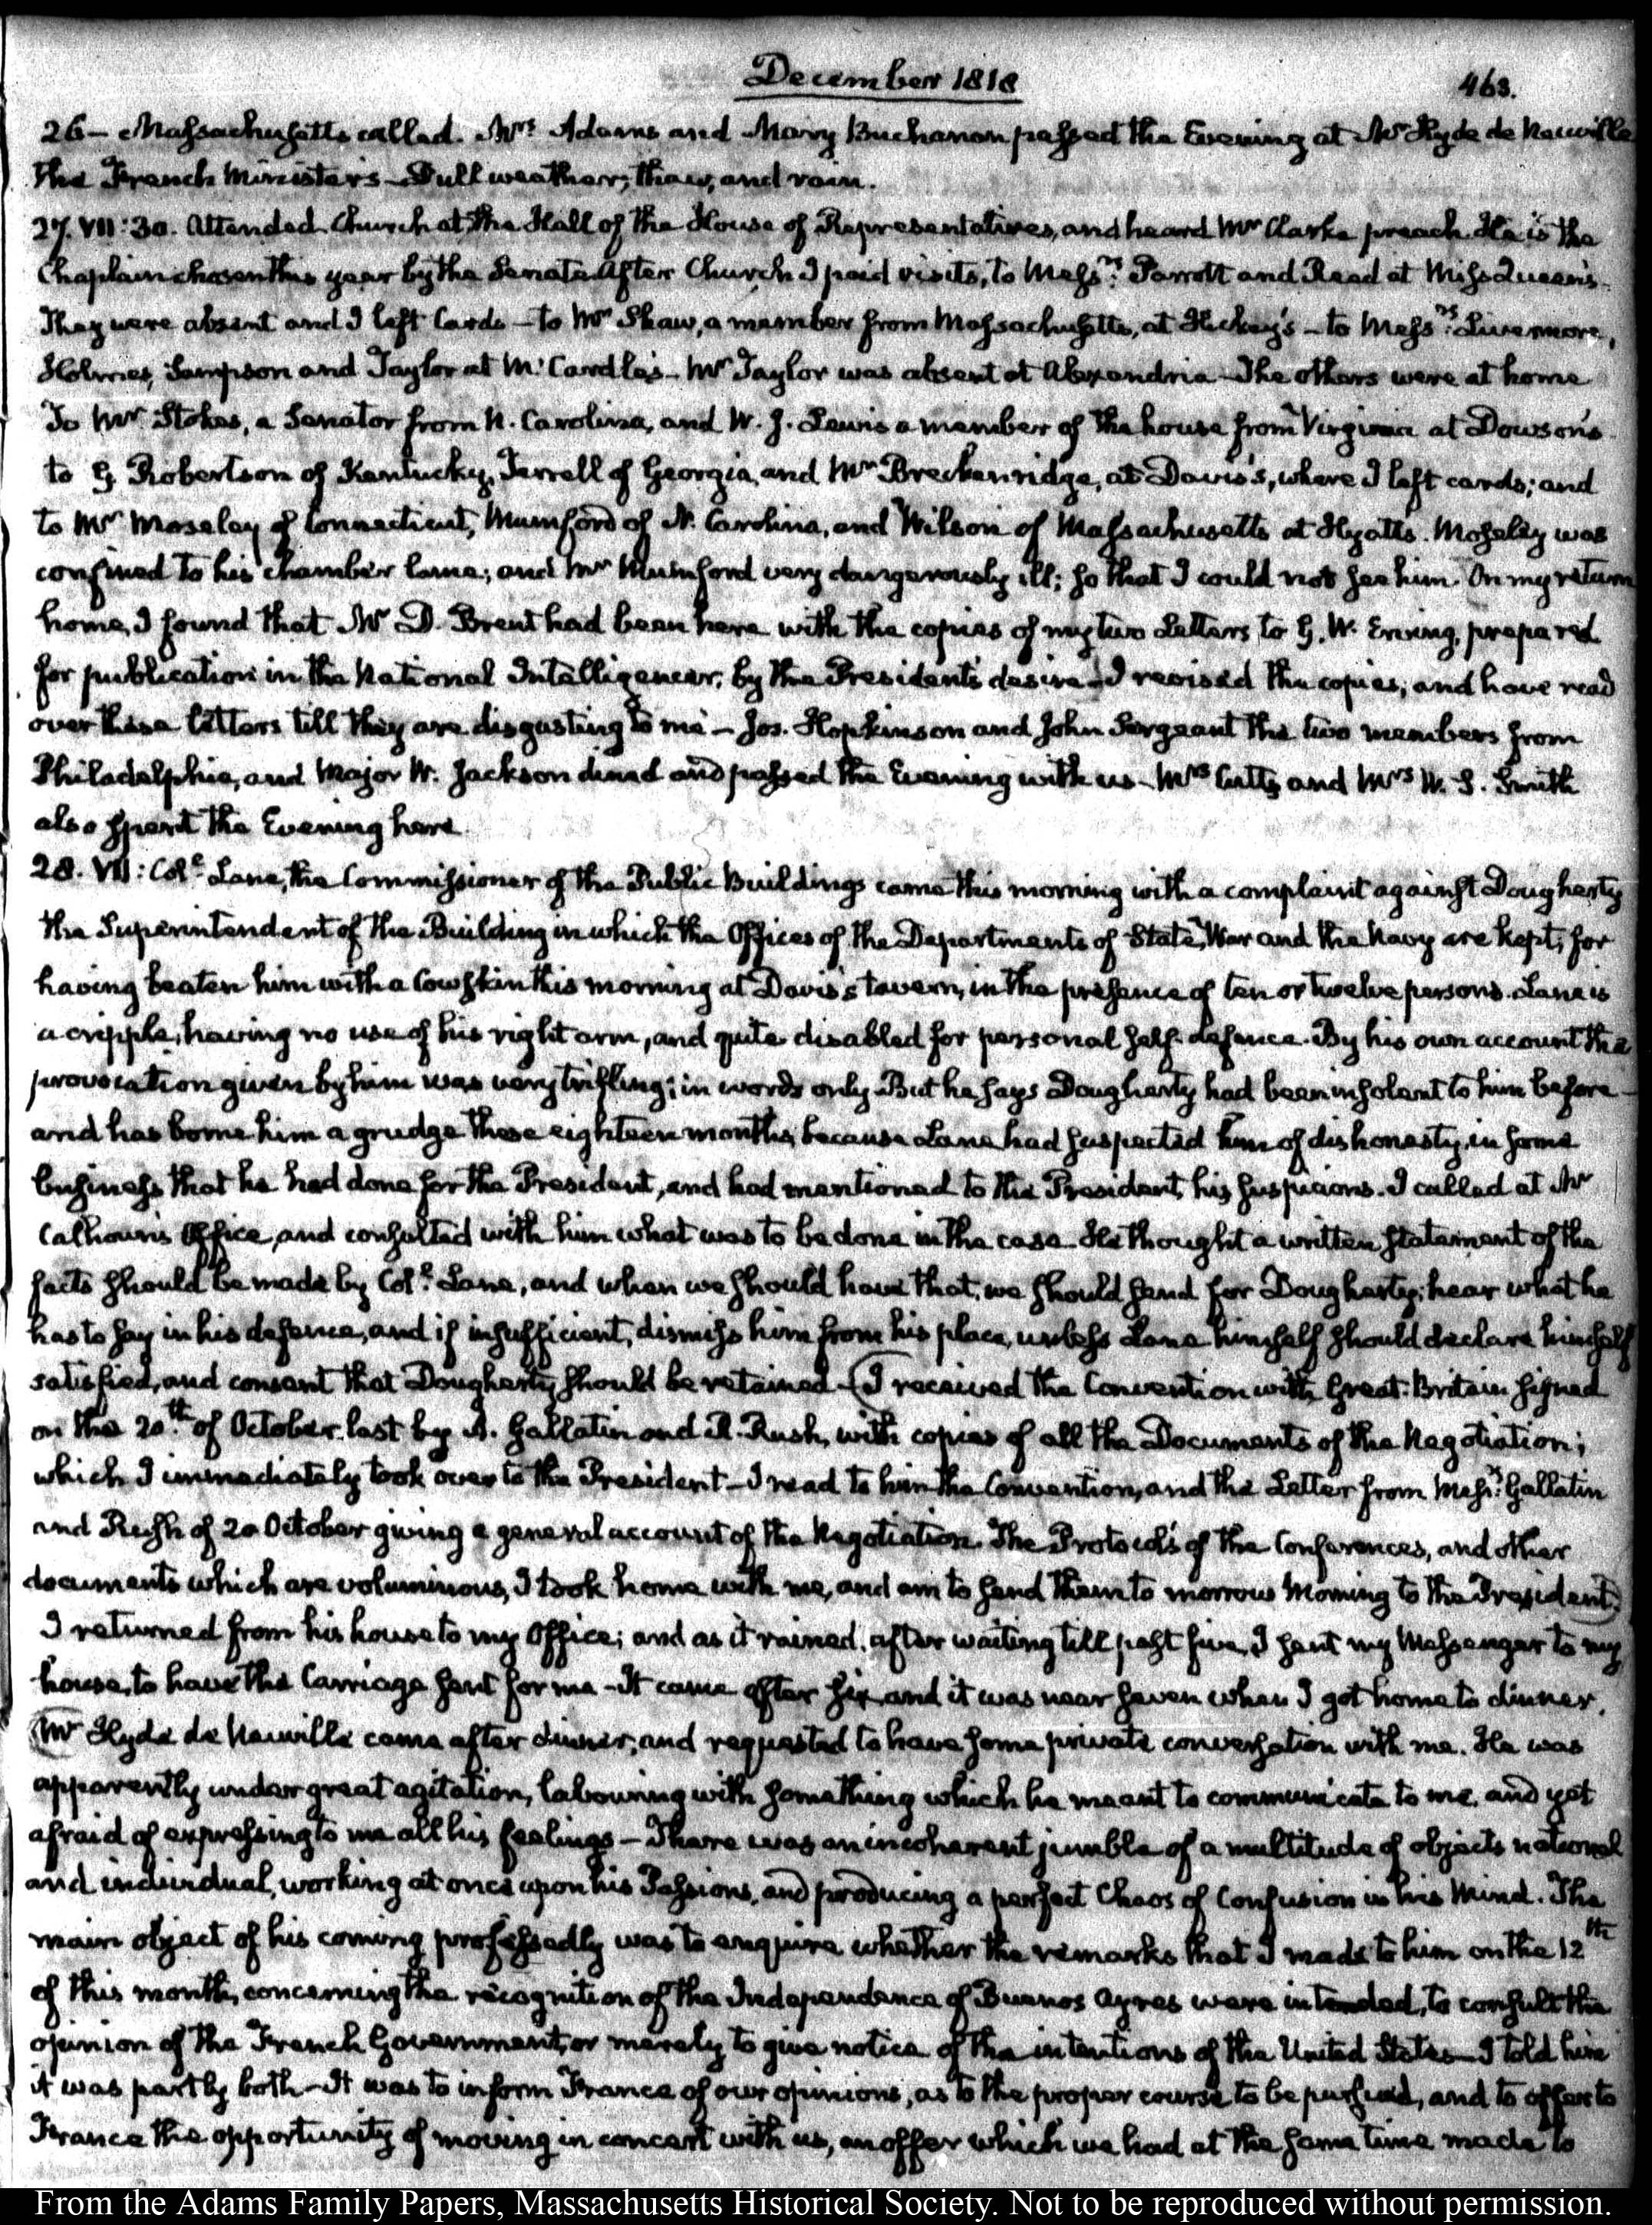 December 1818
463.
26 – Massachusetts called. Mrs Adams and Mary Buchanan passed the Evening at Mr Hyde de Neuville
the French Minister's – Dull weather; thaw, and rain.
27. VII:30. Attended Church at the Hall of the House of Representatives, and heard Mr Clarke preach. He is the
Chaplain chosen this year by the Senate. After Church I paid visits, to Messrs: Parrott and Read at Miss Queen's –
They were absent and I left Cards – to Mr Shaw, a member from Massachusetts, at Hickey's – to Messrs: Livermore,
Holmes, Sampson and Taylor at McCardle's – Mr Taylor was absent at Alexandria – The others were at home
To Mr Stokes, a Senator from N. Carolina, and W. J. Lewis a member of the house from Virginia at Dowson's
to G Robertson of Kentucky, Terrell of Georgia, and Mr Breckenridge, at Davis's, where I left cards; and
to Mr Moseley of Connecticut, Mumford of N. Carolina, and Wilson of Massachusetts at Hyatts. Moseley was
confined to his chamber lame; and Mr Mumford very dangerously ill; so that I could not see him. On my return
home, I found that Mr D. Brent had been here with the copies of my two Letters to G. W. Erving, prepared
for publication in the National Intelligencer, by the President's desire – I revised the copies; and have read
over these letters till they are disgusting to me – Jos. Hopkinson and John Sergeant the two members from
Philadelphia, and Major W. Jackson dined and passed the Evening with us – Mrs Cutts and Mrs W. S. Smith
also spent the Evening here.
28. VII: Colo: Lane, the Commissioner of the Public Buildings came this morning with a complaint against Dougherty
the Superintendent of the Building in which the Offices of the Departments of State, War and the Navy are kept, for
having beaten him with a Cowskin this morning at Davis's tavern, in the presence of ten or twelve persons. Lane is
a cripple, having no use of his right arm, and quite disabled for personal self defence. By his own account the
provocation given by him was very trifling; in words only – But he says Dougherty had been insolent to him before –
and has borne him a grudge these eighteen months, because Lane had suspected him of dishonesty, in some
business that he had done for the President, and had mentioned to the President, his suspicions. I called at Mr
Calhoun's Office, and consulted with him what was to be done in the case. He thought a written statement of the
facts should be made by Colo: Lane, and when we should have that, we should send for Dougherty; hear what he
has to say in his defence, and if insufficient, dismiss him from his place, unless Lane himself should declare himself
satisfied, and consent that Dougherty should be retained – (I received the Convention with Great-Britain signed
on the 20th: of October last by A. Gallatin and R. Rush, with copies of all the Documents of the Negotiation;
which I immediately took over to the President – I read to him the Convention, and the Letter from Messrs: Gallatin
and Rush of 20 October giving a general account of the Negotiation. The Protocols of the Conferences, and other
documents which are voluminous, I took home with me, and am to send them to morrow Morning to the President.)
I returned from his house to my Office; and as it rained, after waiting till past five, I sent my Messenger to my
house, to have the Carriage sent for me – It came after six and it was near seven when I got home to dinner.
(Mr Hyde de Neuville came after dinner, and requested to have some private conversation with me. He was
apparently under great agitation, labouring with something which he meant to communicate to me, and yet
afraid of expressing to me all his feelings – There was an incoherent jumble of a multitude of objects national
and individual, working at once upon his Passions, and producing a perfect Chaos of Confusion in his Mind. The
main object of his coming professedly was to enquire whether the remarks that I made to him on the 12th
of this month, concerning the recognition of the Independence of Buenos Ayres were intended, to consult the
opinion of the French Government, or merely to give notice of the intentions of the United States – I told him
it was partly both – It was to inform France of our opinions, as to the proper course to be pursued, and to offer to
France the opportunity of moving in concert with us, an offer which we had at the same time made to
From the Adams Family Papers, Massachusetts Historical Society. Not to be reproduced without permission.